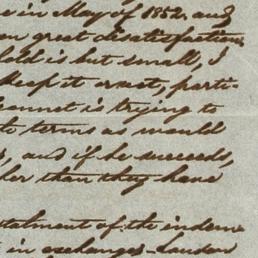 e in May of 1852, and
en great dissatisfaction
old is but small, I
keep it exact, parti-
eannet is trying to
to terms as would
, and if he succeeds,
her than they have
stalment of the indem-
in exchange - London